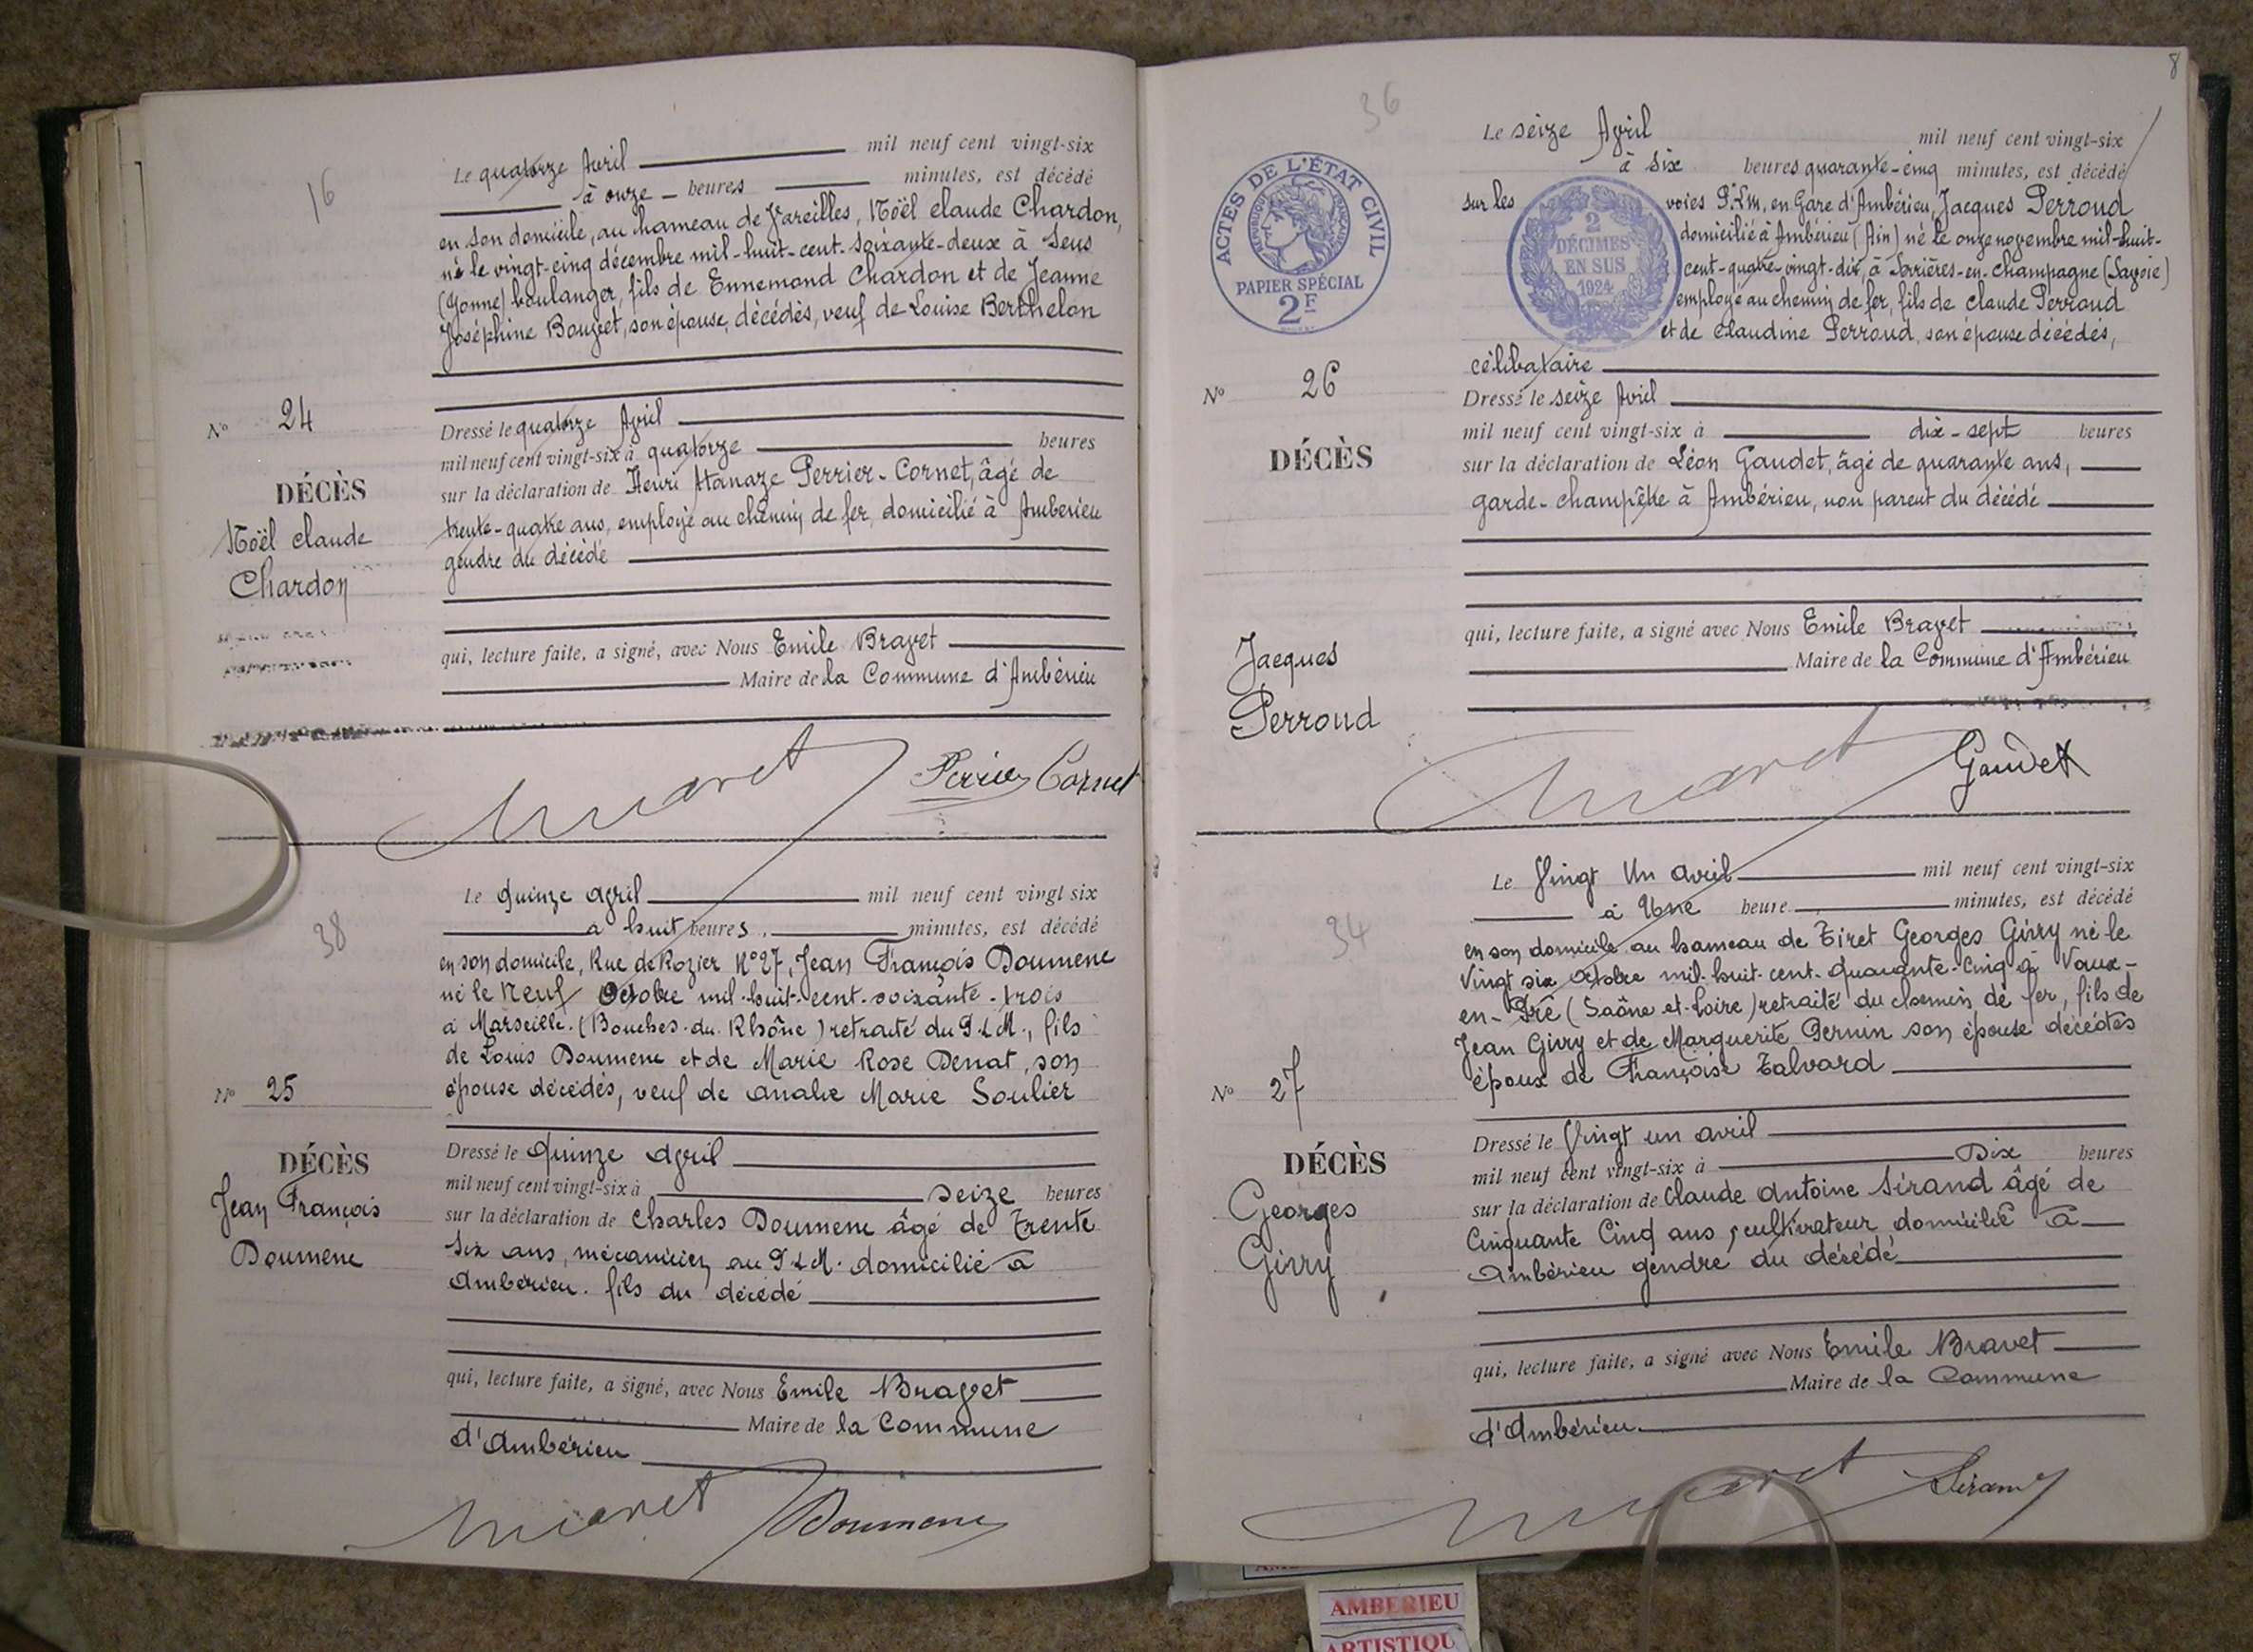 16
Le quatorze Avril mil neuf cent vingt-six
à onze heures minutes, est décédé
en son domicile, au hameau de Vareilles, Noël Claude Chardon,
né le vingt-cinq décembre mil-huit-cent-soixante-deux à Sens
(Yonne) boulanger, fils de Ennemond Chardon et de Jeanne
Joséphine Bouget, son épouse, décédés, veuf de Louise Berthelon
No 24
DÉCÈS
Noël Claude
Chardon
Dressé le quatorze Avril
mil neuf cent vingt-six à quatorze heures
sur la déclaration de Henri Atanaze Perrier-Cornet, âgé de
trente-quatre ans, employé au chemin de fer, domicilié à Ambérieu
gendre du décédé
qui, lecture faite, a signé, avec Nous Emile Bravet
Maire de la Commune d'Ambérieu
Perrier Cornet
38
Le Quinze avril mil neuf cent vingt six
à huit heures, minutes, est décédé
en son domicile, Rue de Rozier No 27, Jean François Doumene
né le Neuf Octobre mil-huit-cent-soixante-trois
à Marseille (Bouches-du-Rhône) retraité du P.L.M., fils
de Louis Doumene et de Marie Rose Denat, son
épouse décédés, veuf de Analie Marie Soulier
No 25
DÉCÈS
Jean François
Doumene
Dressé le Quinze avril
mil neuf cent vingt-six à seize heures
sur la déclaration de Charles Doumene âgé de Trente
six ans, mécanicien au P.L.M. domicilié à
Ambérieu. fils du décédé
qui, lecture faite, a signé, avec Nous Emile Bravet
Maire de la Commune
d'Ambérieu
Doumene
8
36
ACTES DE L'ÉTAT CIVIL
RÉPUBLIQUE FRANÇAISE
PAPIER SPÉCIAL
2F
2
DÉCIMES
EN SUS
1924
Le seize Avril mil neuf cent vingt-six
à six heures quarante-cinq minutes, est décédé
sur les voies P.L.M, en Gare d'Ambérieu, Jacques Perroud
domicilié à Ambérieu (Ain) né le onze novembre mil-huit-
cent-quatre-vingt-dix, à Serrières-en-Champagne (Savoie)
employé au chemin de fer, fils de Claude Perroud
et de Claudine Perroud, son épouse décédés,
célibataire
No 26
DÉCÈS
Jacques
Perroud
Dressé le seize Avril
mil neuf cent vingt-six à dix-sept heures
sur la déclaration de Léon Gaudet, âgé de quarante ans,
garde-champêtre à Ambérieu, non parent du décédé
qui, lecture faite, a signé avec Nous Emile Bravet
Maire de la Commune d'Ambérieu
Gaudet
34
Le Vingt Un avril mil neuf cent vingt-six
à Une heure minutes, est décédé
en son domicile au hameau de Tiret Georges Givry né le
Vingt six Octobre mil-huit-cent-quarante-cinq à Vaux-
en-Pré (Saône-et-Loire) retraité du chemin de fer, fils de
Jean Givry et de Marguerite Pernin son épouse décédés
époux de Françoise Talvard
No 27
DÉCÈS
Georges
Givry
Dressé le Vingt un avril
mil neuf cent vingt-six à Dix heures
sur la déclaration de Claude Antoine Sirand âgé de
Cinquante Cinq ans, cultivateur domicilié à
Ambérieu gendre du décédé
qui, lecture faite, a signé avec Nous Emile Bravet
Maire de la Commune
d'Ambérieu.
Sirand
AMBERIEU
ARTISTIQU